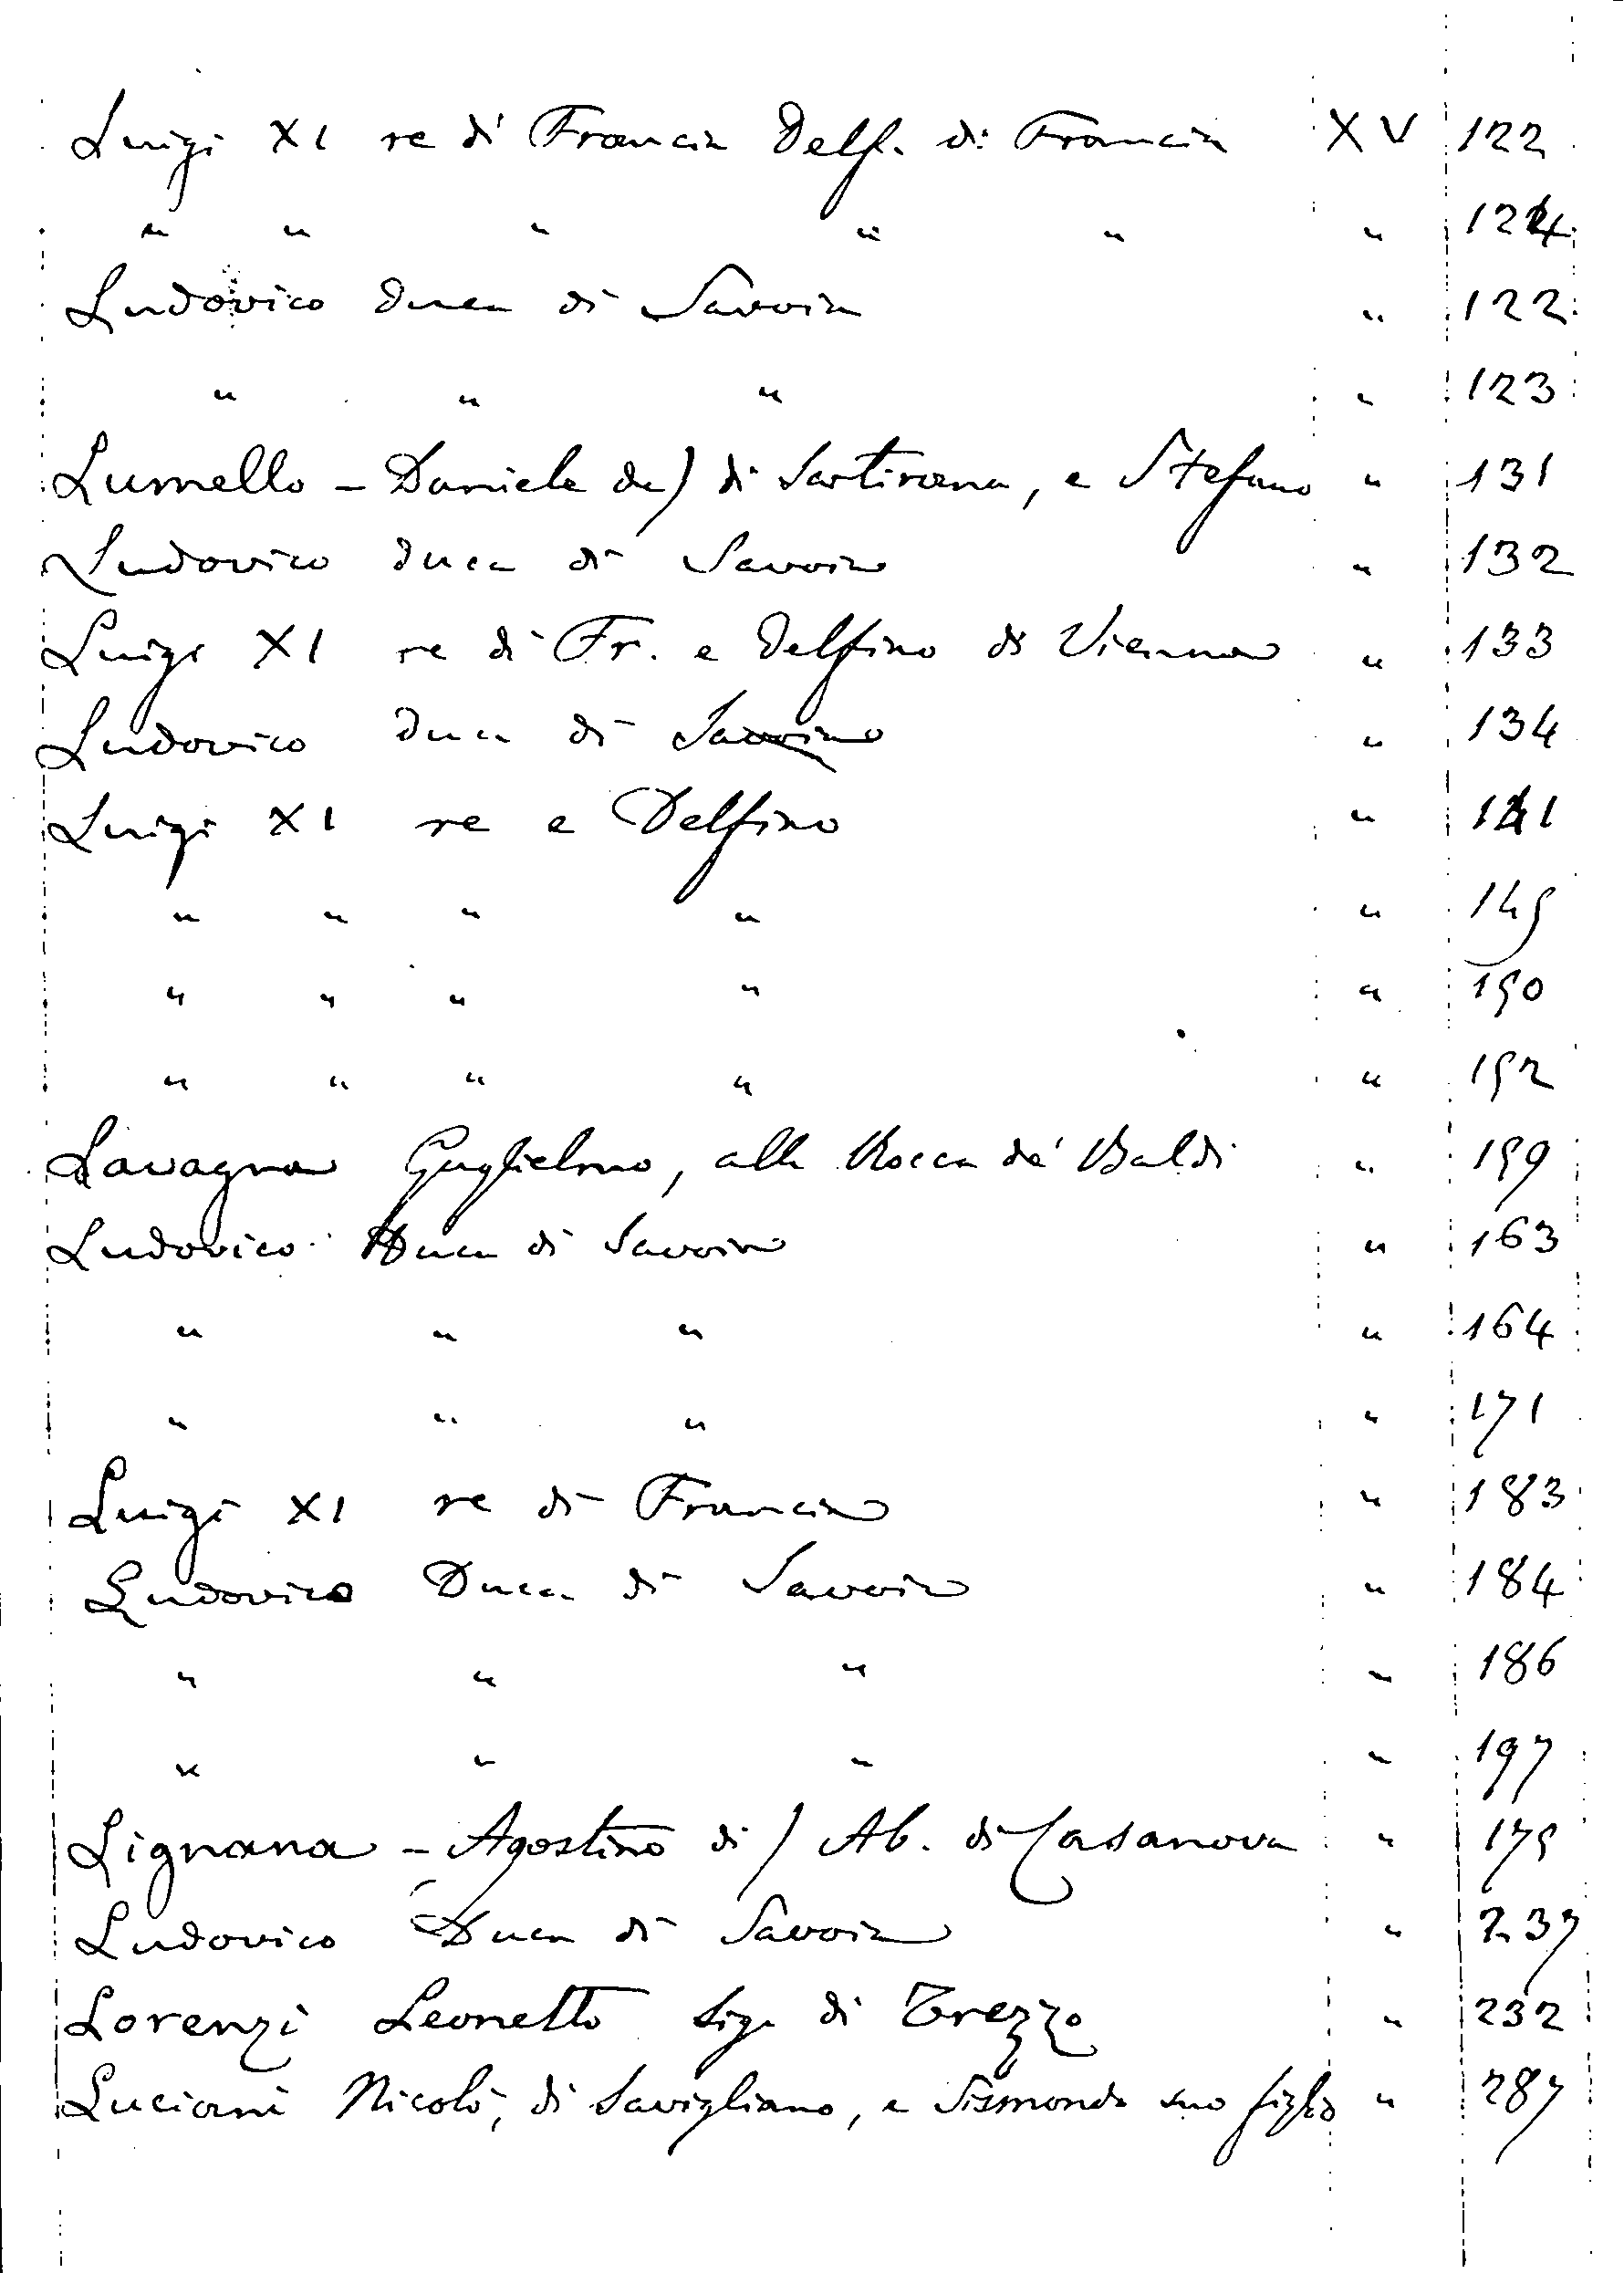 Luigi XI re di Francia Delf. di Francia XV 122
" " " " " " 124
Ludovico Duca di Savoia " 122
" " " " 123
Lumello - Daniele de) di Sartirana, e Stefano " 131
Ludovico Duca di Savoia " 132
Luigi XI re di Fr. e Delfino di Vienna " 133
Ludovico Duca di Savoia " 134
Luigi XI re e Delfino " 141
" " " " " 145
" " " " " 150
" " " " " 152
Lavagna Guglielmo, alla Rocca de' Baldi " 159
Ludovico Duca di Savoia " 163
" " " " 164
" " " " 171
Luigi XI re di Francia " 183
Ludovico Duca di Savoia " 184
" " " " 186
" " " " 197
Lignana - Agostino di) Ab. di Casanova " 175
Ludovico Duca di Savoia " 237
Lorenzi Leonetto sigr di Trezzo " 232
Luciani Nicolò, di Savigliano, e Sismondo suo figlio " 287